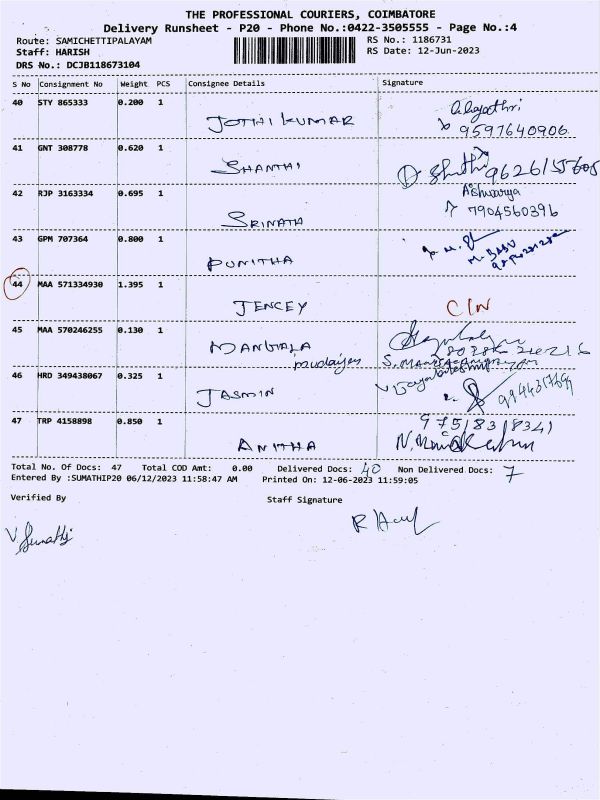 THE PROFESSIONAL COURIERS, COIMBATORE
Delivery Runsheet - P20 - Phone No.:0422-3505555 - Page No.:4
Route: SAMICHETTIPALAYAM RS No.: 1186731
Staff: HARISH RS Date: 12-Jun-2023
DRS No.: DCJB118673104
S No Consignment No Weight PCS Consignee Details Signature
40 STY 865333 0.200 1 JOTHI KUMAR
9597640906
41 GNT 308778 0.620 1 SHANTHI
42 RJP 3163334 0.695 1 SRINATH Aishwarya
7904560396
43 GPM 707364 0.800 1 PUNITHA
M. BABU
44 MAA 571334930 1.395 1 JENCEY CIN
45 MAA 570246255 0.130 1 MANGALA
46 HRD 349438067 0.325 1 JASMIN
47 TRP 4158898 0.850 1 ANITHA
9751831834)
Total No. Of Docs: 47 Total COD Amt: 0.00 Delivered Docs: 40 Non Delivered Docs: 7
Entered By :SUMATHIP20 06/12/2023 11:58:47 AM Printed On: 12-06-2023 11:59:05
Verified By Staff Signature
V. Sumathi